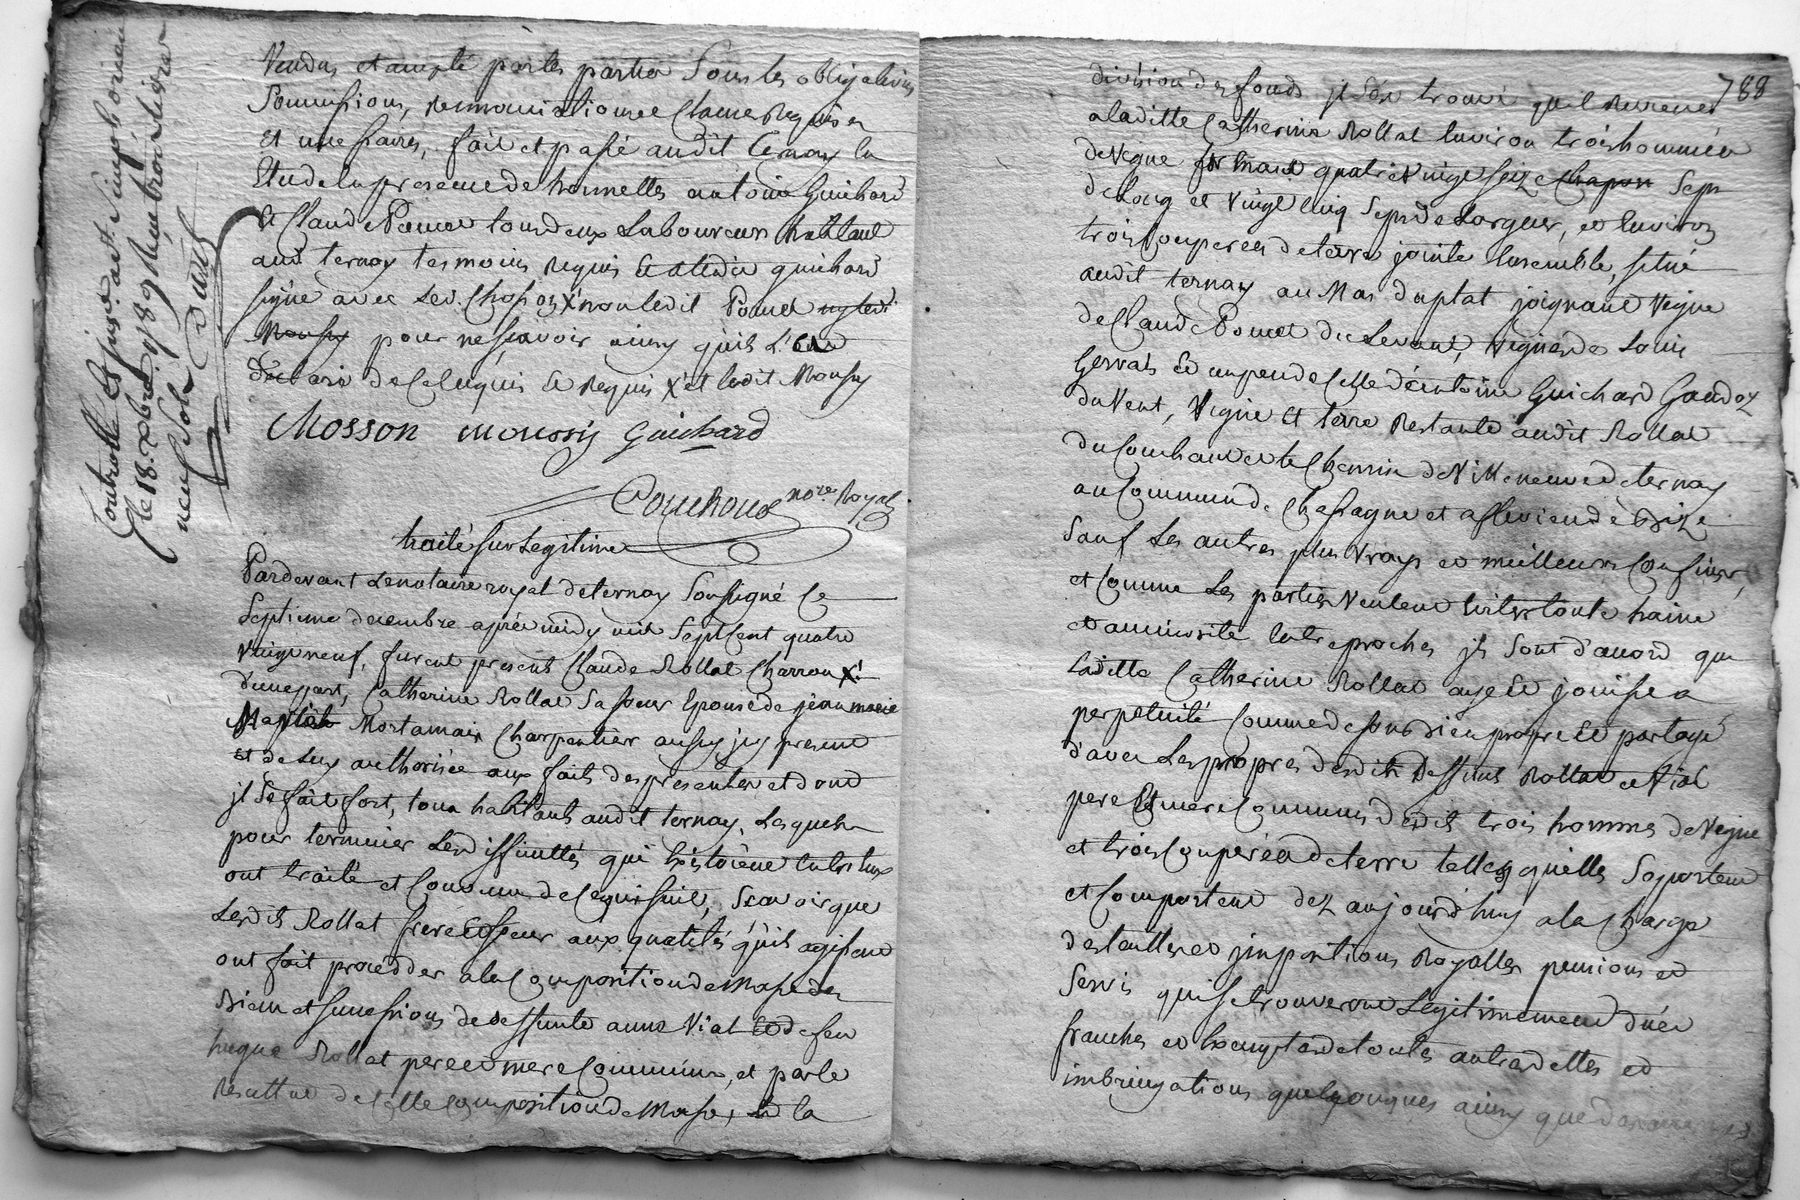 Controllé Es insinué a St Simphorien
le 18. Xbre 1789 Reçu trois livres
neuf sols
Vendus, et accepté par les parties Sous les obligations
Soumissions, Rennonciations et Clauses Requises
Et necessaires, fait et passé audit Ternay la
Etude En presence de honnettes antoine Guichard
Et Claude Pomet tous deux Laboureurs habitant
audit ternay temoins Requis Et attedit guichard
signé avec Led. Chosson X non ledit Pomet
Moussy pour ne sçavoir ainsy qu'ils L'ont
declaré de Ce Enquis Et Requis X et ledit Moussy
Mosson moussy Guichard
Couchoud nore Royal
traité sur Legitime
Pardevant Lenotaire royal de ternay Soussigné Ce
Septieme decembre après midy mil Sept Cent quatre
Vingt neuf, furent presents Claude Rollat Charron X
d'une part, Catherine Rollat Sa soeur Epouse de jean marie
Mortamais Charpentier aussy jcy present
Et de Luy authorisée aux faits des presentes et dont
jl Se fait fort, tous habitants audit ternay, Lesquels
pour terminer Les difficultés qui Existoient Entr'Eux
ont traité et Convenu de Ce qui suit, Scavoir que
Lesdits Rollat frere Et Soeur aux qualités qu'ils agissent
ont fait procedder a la Composition de Masse des
Biens et successions de deffunte anne Vial Et de feu
hugue Rollat pere et mere Communs, et par le
Resultat de Cette Composition de Masse, Et la
788
division des fonds jl s'est trouvé qu'il Revenoit
a laditte Catherine Rollat Environ trois hommées
de Vigne formant quatre Vingt seize Chapon Seps
de Long et Vingt Cinq Seps de Largeur, et Environ
trois Couperées de terre jointe Ensemble, situé
audit ternay au Mas duplat joignant Vigne
de Claude Pomet du Levant, Vignes de Louis
Gervais Et un peu de Celle d'antoine Guichard Gaudoz
du Vent, Vigne Et terre Restante audit Rollat
du Couchant et le Chemin de Villeneuve de ternay
au Commun de Chassagne et de Bize
Sauf Les autres plus Vrays et meilleurs Confins,
et Comme Les parties Veulent Eviter toute haine
et animosité Entre proches jls Sont d'accord que
Laditte Catherine Rollat aye Et jouisse a
perpetuité Comme de Son Bien propre Et partagé
d'avec Les propres desdits deffunts Rollat et Vial
pere Et mere Communs desdits trois hommés de Vigne
et trois Couperées de terre telles qu'elles Soportent
et Comportent dez aujourd'huy a la Charge
des tailles et jmpositions Royalles pensions et
Servis qui se trouveront Legitimement dües
franches et Exemptes de toutes autres dettes et
imbringations quelquonques ainsy que